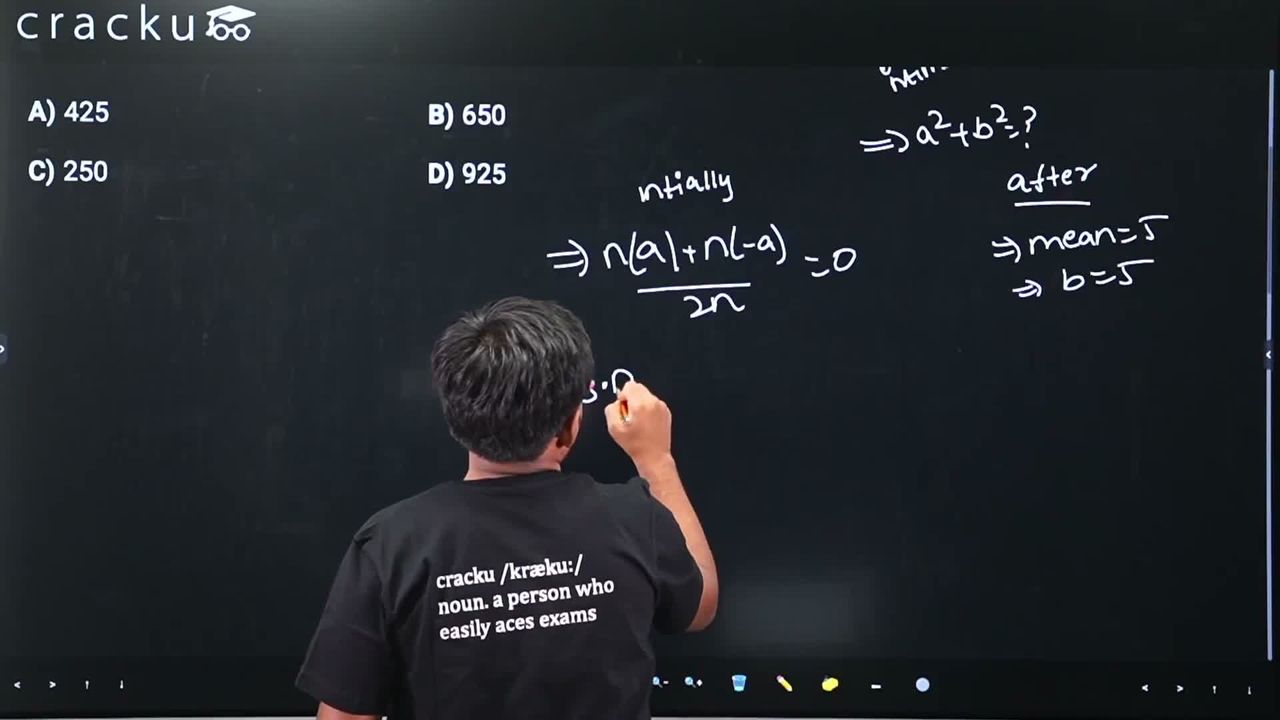 cracku
A) 425
B) 650
C) 250
D) 925
⇒ a²+b²=?
ntially
⇒ n(a)+n(-a) =0
2n
after
⇒ mean=5
⇒ b=5
S.D
cracku /kræku:/
noun. a person who
easily aces exams